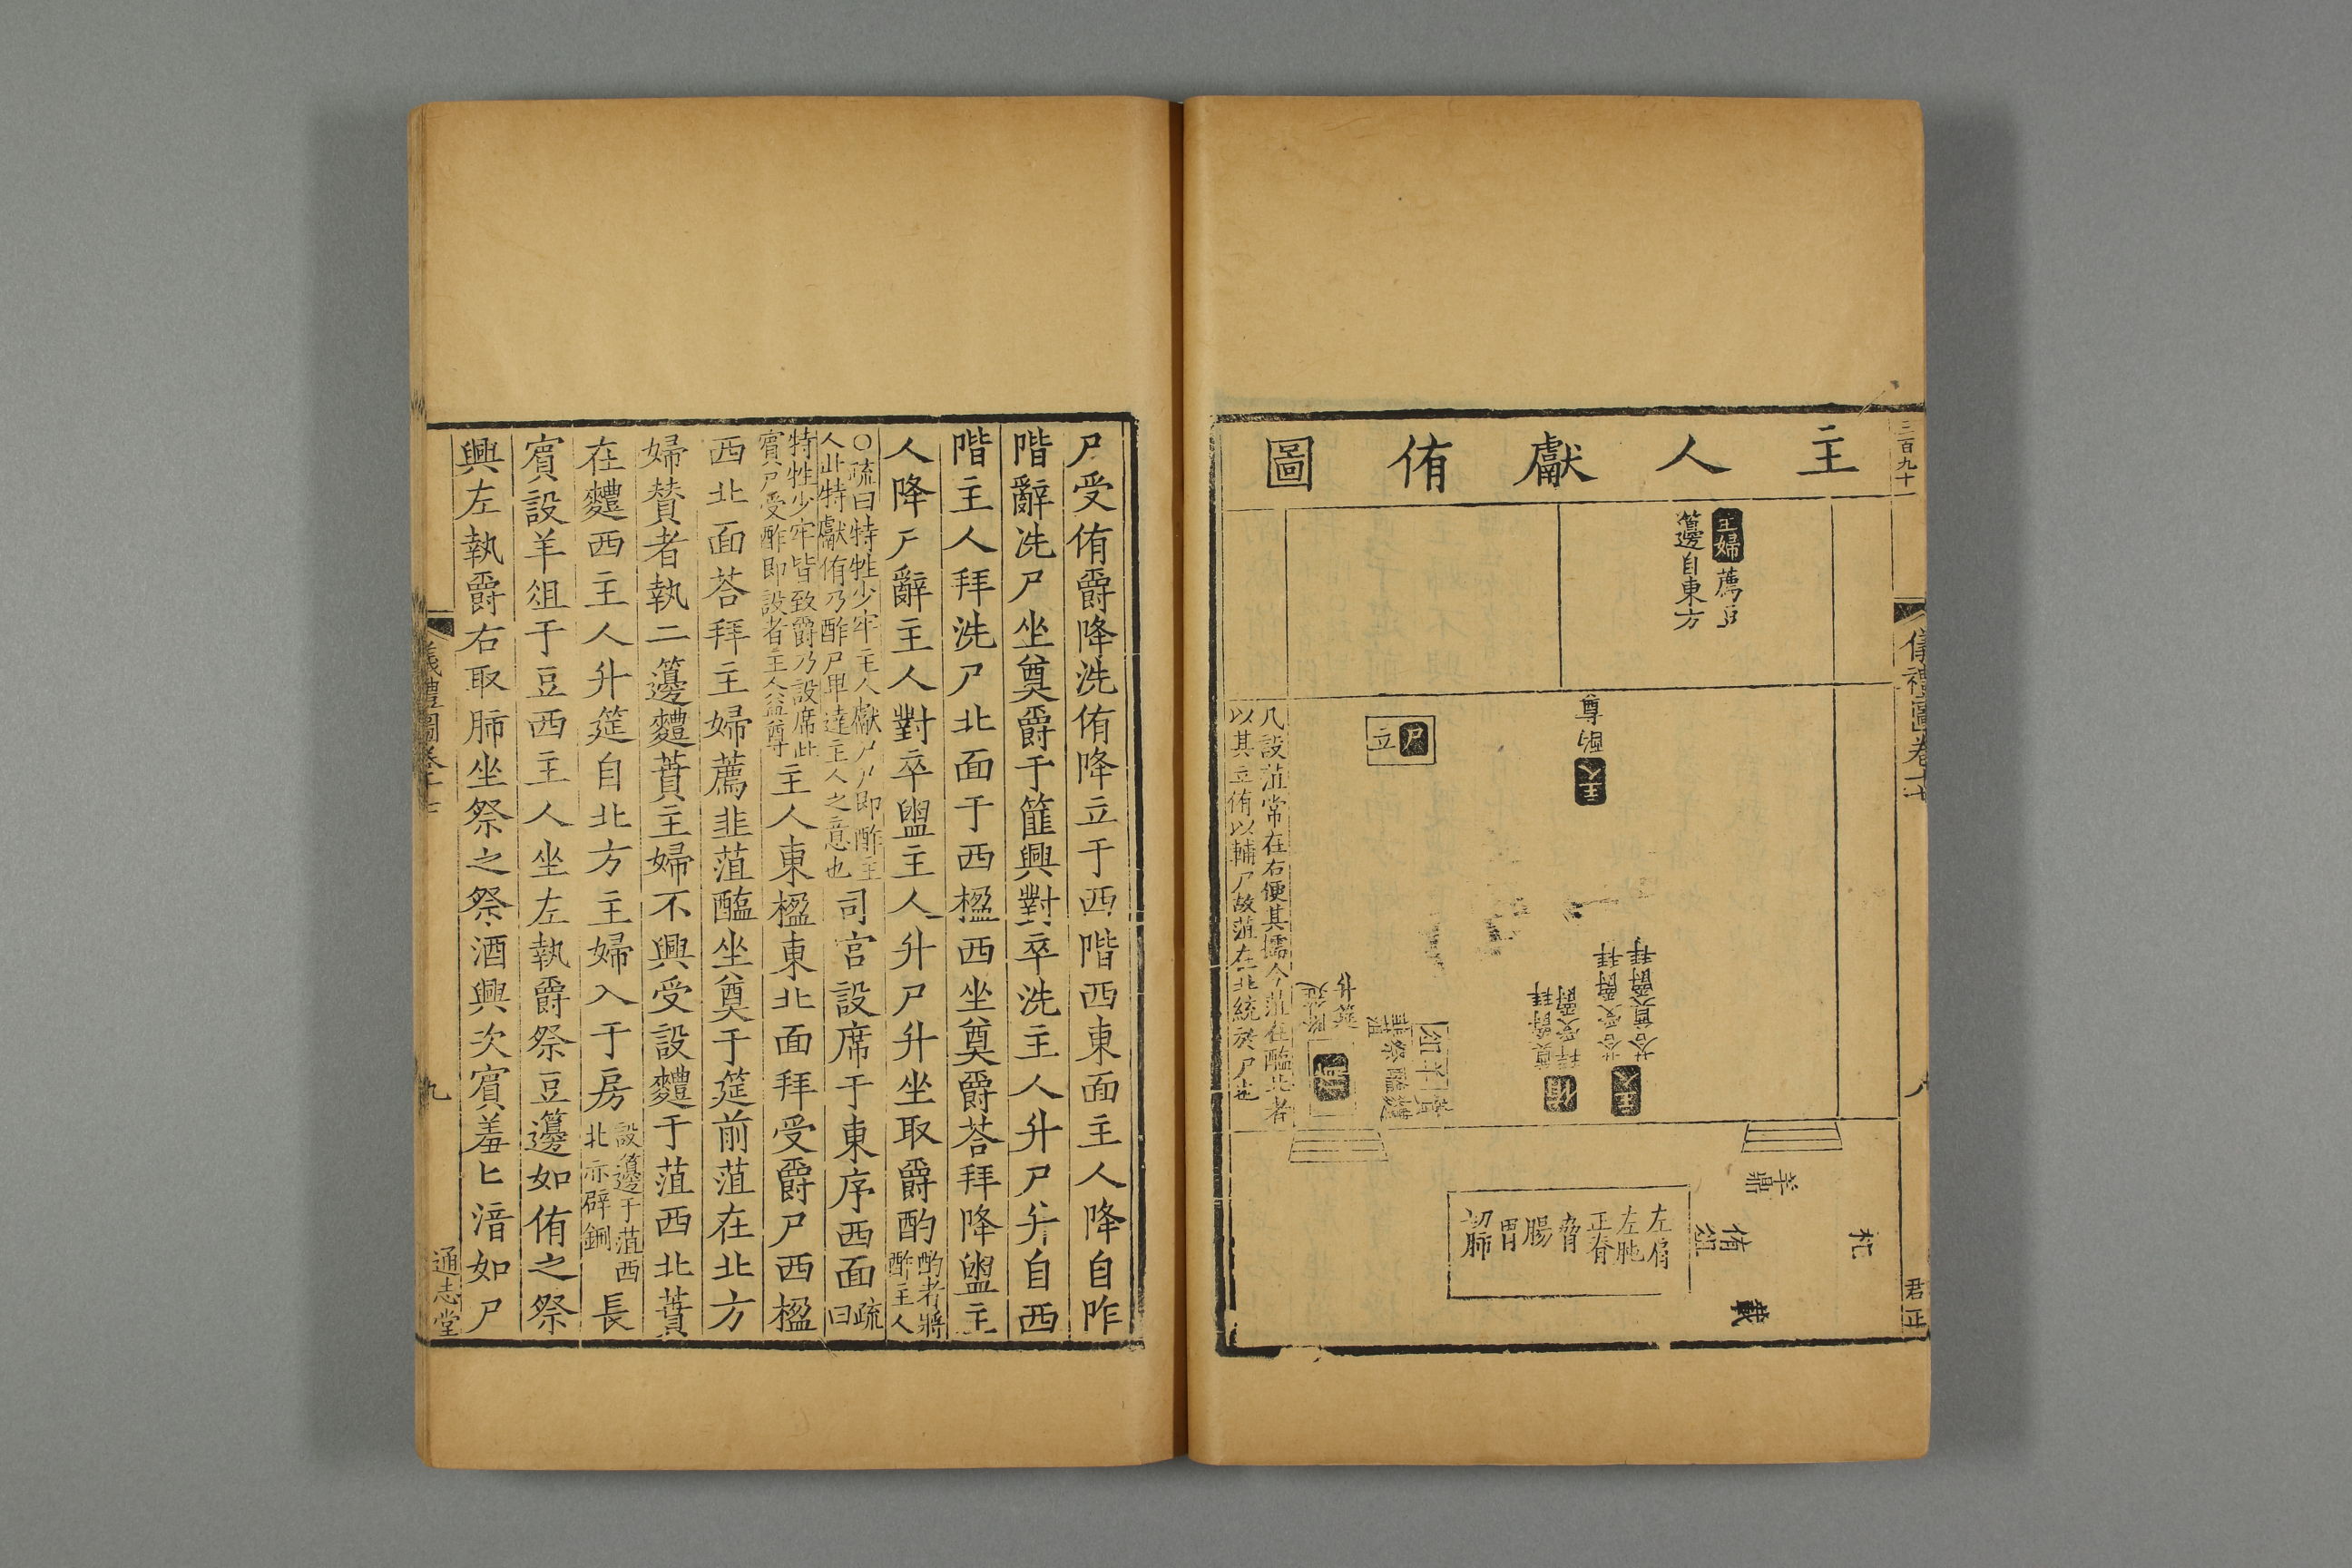 三百九十一
儀禮圖卷十七
八
君正
主人獻侑圖
主婦薦豆
籩自東方
尊
酌
主人
尸
立
凡設菹常在右便其擩今菹在醢北者
以其立侑以輔尸故菹在北統於尸也
主人
荅首奠爵拜
荅受爵拜
侑
拜受爵
奠爵拜
羊鼎
侑俎
匕
載
左肩
左肫
正脊
脅
腸
胃
切肺
尸受侑爵降洗侑降立于西階西東面主人降自阼
階辭洗尸坐奠爵于篚興對卒洗主人升尸升自西
階主人拜洗尸北面于西楹西坐奠爵荅拜降盥主
人降尸辭主人對卒盥主人升尸升坐取爵酌酌者將
酢主人
○疏曰特牲少牢主人獻尸尸即酢主
人此特獻侑乃酢尸卑達主人之意也司宮設席于東序西面疏
曰
特牲少牢皆致爵乃設席此
賓尸受酢即設者主人益尊主人東楹東北面拜受爵尸西楹
西北面荅拜主婦薦韭菹醢坐奠于筵前菹在北方
婦贊者執二籩麷蕡主婦不興受設麷于菹西北蕡
在麷西主人升筵自北方主婦入于房設籩于菹西
北亦辟鉶長
賓設羊俎于豆西主人坐左執爵祭豆籩如侑之祭
興左執爵右取肺坐祭之祭酒興次賓羞匕湆如尸
儀禮圖卷十七
九
通志堂